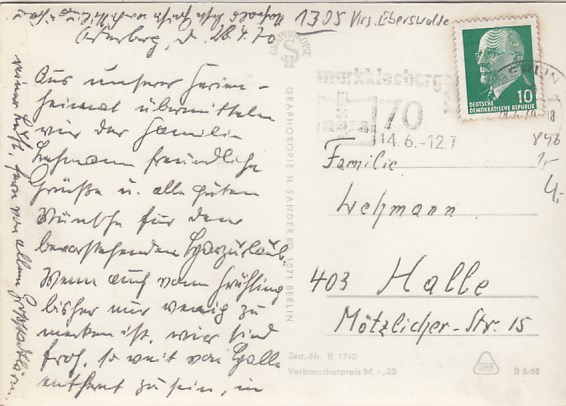 1305 Krs. Eberswalde
Oderberg, d. 28.4.70
Aus unserer Ferien-
heimat übermitteln
wir der Familie
Lehmann freundliche
Grüße u. alle guten
Wünsche für den
bevorstehenden
Wenn auch vom Frühling
bisher nur wenig zu
merken ist, wir sind
froh, so weit von Halle
entfernt zu sein, in
reiner Luft, fern von allem
GRAPHOKOPIE H. SANDER KG, 1071 BERLIN
markkleeberg
agra
70
14.6.-12.7
BERLIN
10
DEUTSCHE
DEMOKRATISCHE REPUBLIK
896
1,-
4,-
Familie
Lehmann
403 Halle
Mötzlicher-Str. 15
Bed.-Nr. B 1740
Verbraucherpreis M -,25